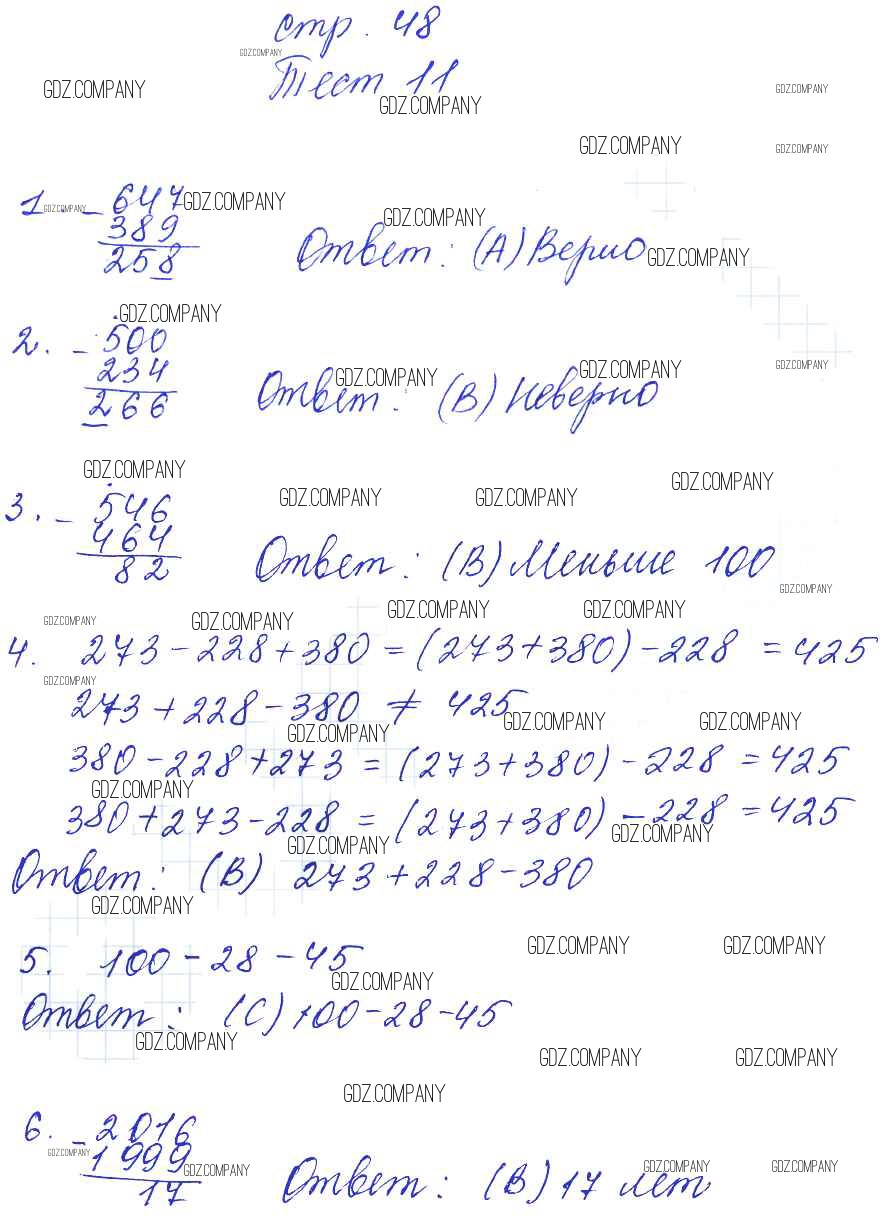 стр. 48
Тест 11
1. - 647
389
258
Ответ: (A) Верно
2. - 500
234
266
Ответ: (B) Неверно
3. - 546
464
82
Ответ: (B) Меньше 100
4. 273 - 228 + 380 = (273 + 380) - 228 = 425
273 + 228 - 380 ≠ 425
380 - 228 + 273 = (273 + 380) - 228 = 425
380 + 273 - 228 = (273 + 380) - 228 = 425
Ответ: (B) 273 + 228 - 380
5. 100 - 28 - 45
Ответ: (C) 100 - 28 - 45
6. - 2016
1999
17
Ответ: (B) 17 лет
GDZ.COMPANY